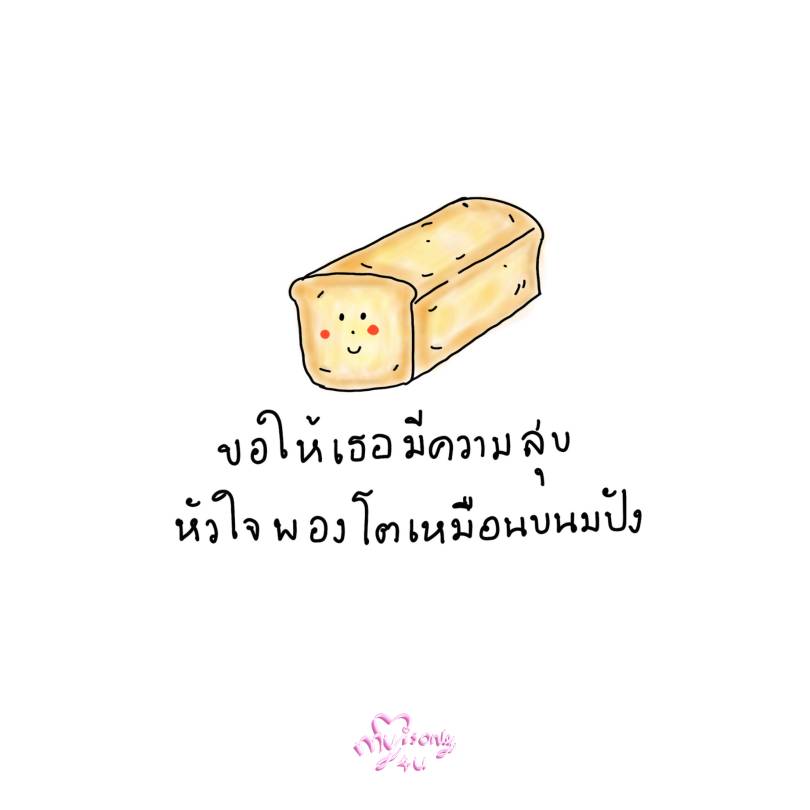 ขอให้เธอมีความสุข
หัวใจพองโตเหมือนขนมปัง
my is only
4U